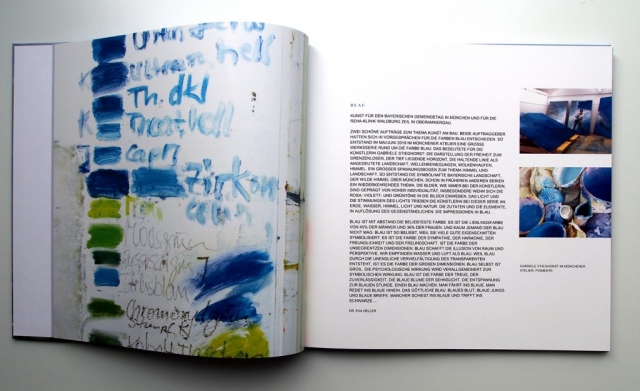 Ultram. hell
Th. dkl
BLAU
KUNST FÜR DEN BAYERISCHEN GEMEINDETAG IN MÜNCHEN UND FÜR DIE
REHA-KLINIK WALDBURG ZEIL IN OBERAMMERGAU.
ZWEI SCHÖNE AUFTRÄGE ZUM THEMA KUNST AM BAU. BEIDE AUFTRAGGEBER
HATTEN SICH IN VORGESPRÄCHEN FÜR DIE FARBEN BLAU ENTSCHIEDEN. SO
ENTSTAND IM MAI/JUNI 2010 IM MÜNCHENER ATELIER EINE GROSSE
WERKSERIE RUND UM DIE FARBE BLAU. DAS BEDEUTETE FÜR DIE
KÜNSTLERIN GABRIELE STIEGHORST: DIE DARSTELLUNG DER FREIHEIT ZUM
GRENZENLOSEN, DER TIEF LIEGENDE HORIZONT, DIE HALTENDE LINIE ALS
ANGEDEUTETE LANDSCHAFT, WELLENBEWEGUNGEN, WOLKENHAUFEN,
HIMMEL. EIN GROSSER SPANNUNGSBOGEN ZUM THEMA HIMMEL UND
LANDSCHAFT. SO ENTSTAND DIE SYMBOLHAFTE BAYERISCHE LANDSCHAFT,
DER WILDE HIMMEL ÜBER MÜNCHEN, SCHON IN FRÜHEREN ARBEITEN DEREN
EIN WIEDERKEHRENDES THEMA. DIE BILDER, WIE IMMER BEI DER KÜNSTLERIN,
SIND GEPRÄGT VON HOHER INDIVIDUALITÄT, INSBESONDERE WENN SICH DIE
ROSA- VIOLETT- UND GRÜNTÖNE IN DEN BLAUTÖNEN EINBINDEN. DAS LICHT UND
DIE STIMMUNGEN DES LICHTS TRIEBEN DIE KÜNSTLERIN BEI DIESER SERIE AN.
ERDE, WASSER, HIMMEL, LICHT UND NATUR. DIE ZUTATEN UND DIE ELEMENTE,
IN AUFLÖSUNG DES GEGENSTÄNDLICHEN: DIE IMPRESSIONEN IN BLAU.
BLAU IST MIT ABSTAND DIE BELIEBTESTE FARBE. ES IST DIE LIEBLINGSFARBE
VON 40% DER MÄNNER UND 36% DER FRAUEN. UND KAUM JEMAND DER BLAU
NICHT MAG. BLAU IST SO BELIEBT, WEIL DIE VIELE GUTE EIGENSCHAFTEN
SYMBOLISIERT. ES IST DIE FARBE DER SYMPATHIE, DER HARMONIE, DER
FREUNDLICHKEIT UND DER FREUNDSCHAFT. IST DIE FARBE DER
UNBEGRENZTEN DIMENSIONEN. BLAU SCHAFFT DIE ILLUSION VON RAUM UND
PERSPEKTIVE. WIR EMPFINDEN WASSER UND LUFT ALS BLAU, WEIL BLAU
DURCH DIE UNENDLICHE VERVIELFÄLTIGUNG DES TRANSPARENTEN
ENTSTEHT, IST ES DIE FARBE DER GROSSEN DIMENSIONEN. BLAU SELBST IST
GROSS. DIE PSYCHOLOGISCHE WIRKUNG WIRD VERALLGEMEINERT ZUR
SYMBOLISCHEN WIRKUNG: BLAU IST DIE FARBE DER TREUE, DER
ZUVERLÄSSIGKEIT. DIE BLAUE BLUME DER SEHNSUCHT. DIE ENTSPANNUNG
ZUR BLAUEN STUNDE. EINEN BLAU MACHEN. MAN FÄHRT INS BLAUE, MAN
REDET INS BLAUE HINEIN. DAS GÖTTLICHE BLAU. BLAUES BLUT, BLAUE JUNGS
UND BLAUE BRIEFE. MANCHER SCHIESST INS BLAUE UND TRIFFT INS
SCHWARZE...
DR. EVA HELLER
GABRIELE STIEGHORST IM MÜNCHENER
ATELIER, PIGMENTE